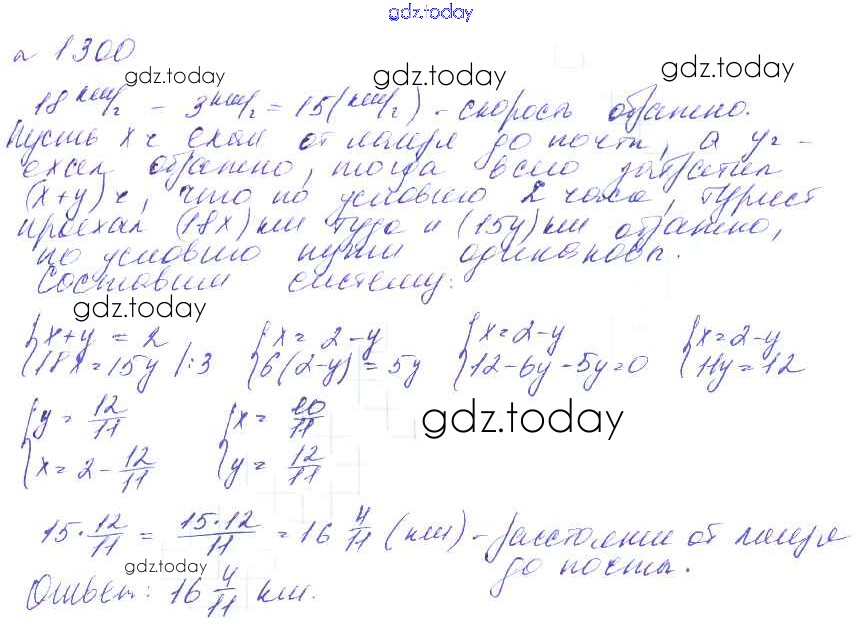 gdz.today
№ 1300
gdz.today gdz.today gdz.today
18 км/ч - 3 км/ч = 15 (км/ч) - скорость обратно.
Пусть x ч ехал от лагеря до почты, а y ч -
ехал обратно, тогда всего затратил
(x+y) ч, что по условию 2 часа, турист
проехал (18x) км туда и (15y) км обратно,
по условию пути одинаковы.
Составим систему:
gdz.today
{x+y = 2 {x = 2-y {x=2-y {x=2-y
{18x=15y |:3 {6(2-y) = 5y {12-6y-5y=0 {11y=12
{y = 12/11 {x = 10/11
gdz.today
{x = 2 - 12/11 {y = 12/11
15 · 12/11 = 15·12/11 = 16 4/11 (км) - расстояние от лагеря
до почты.
gdz.today
Ответ: 16 4/11 км.